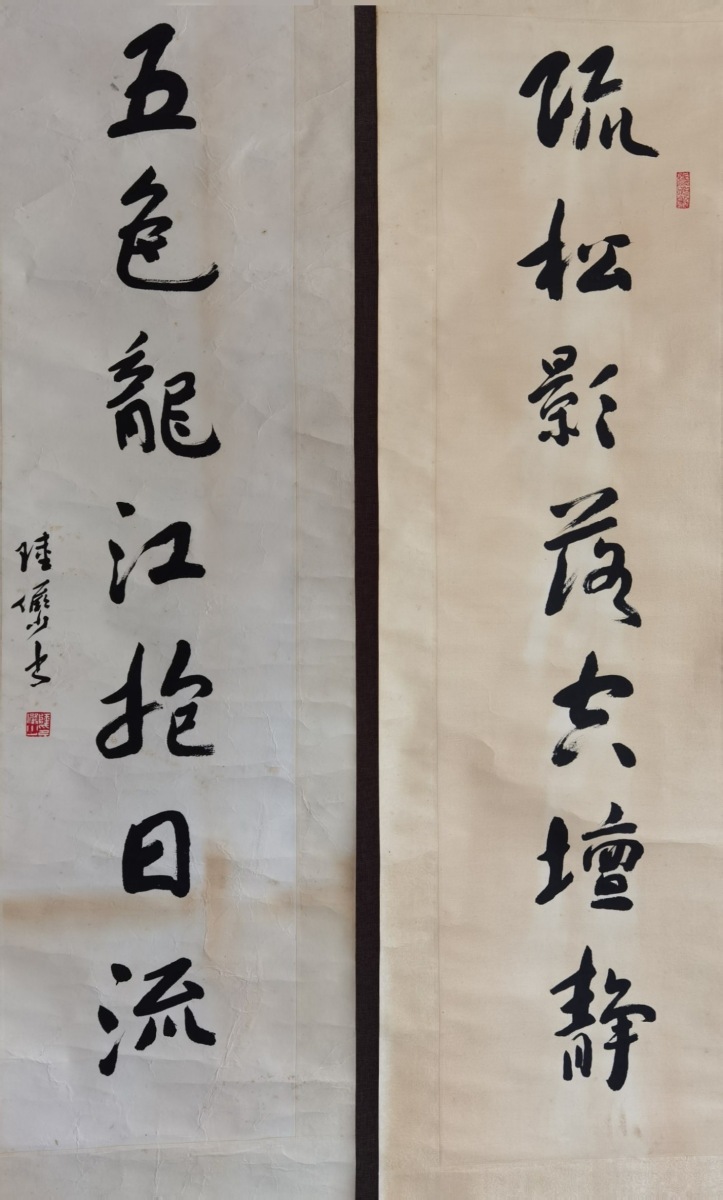 疏松影落空壇靜
五色龍江抱日流
陸儼少書